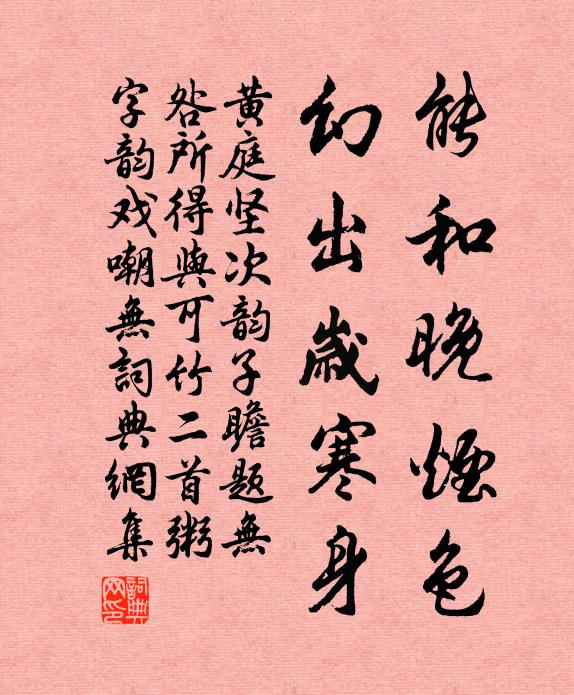 能和晚煙色
幻出歲寒身
黄庭坚次韵子瞻题無
咎所得與可竹二首粥
字韵戏嘲無詞典網集
詞典網印